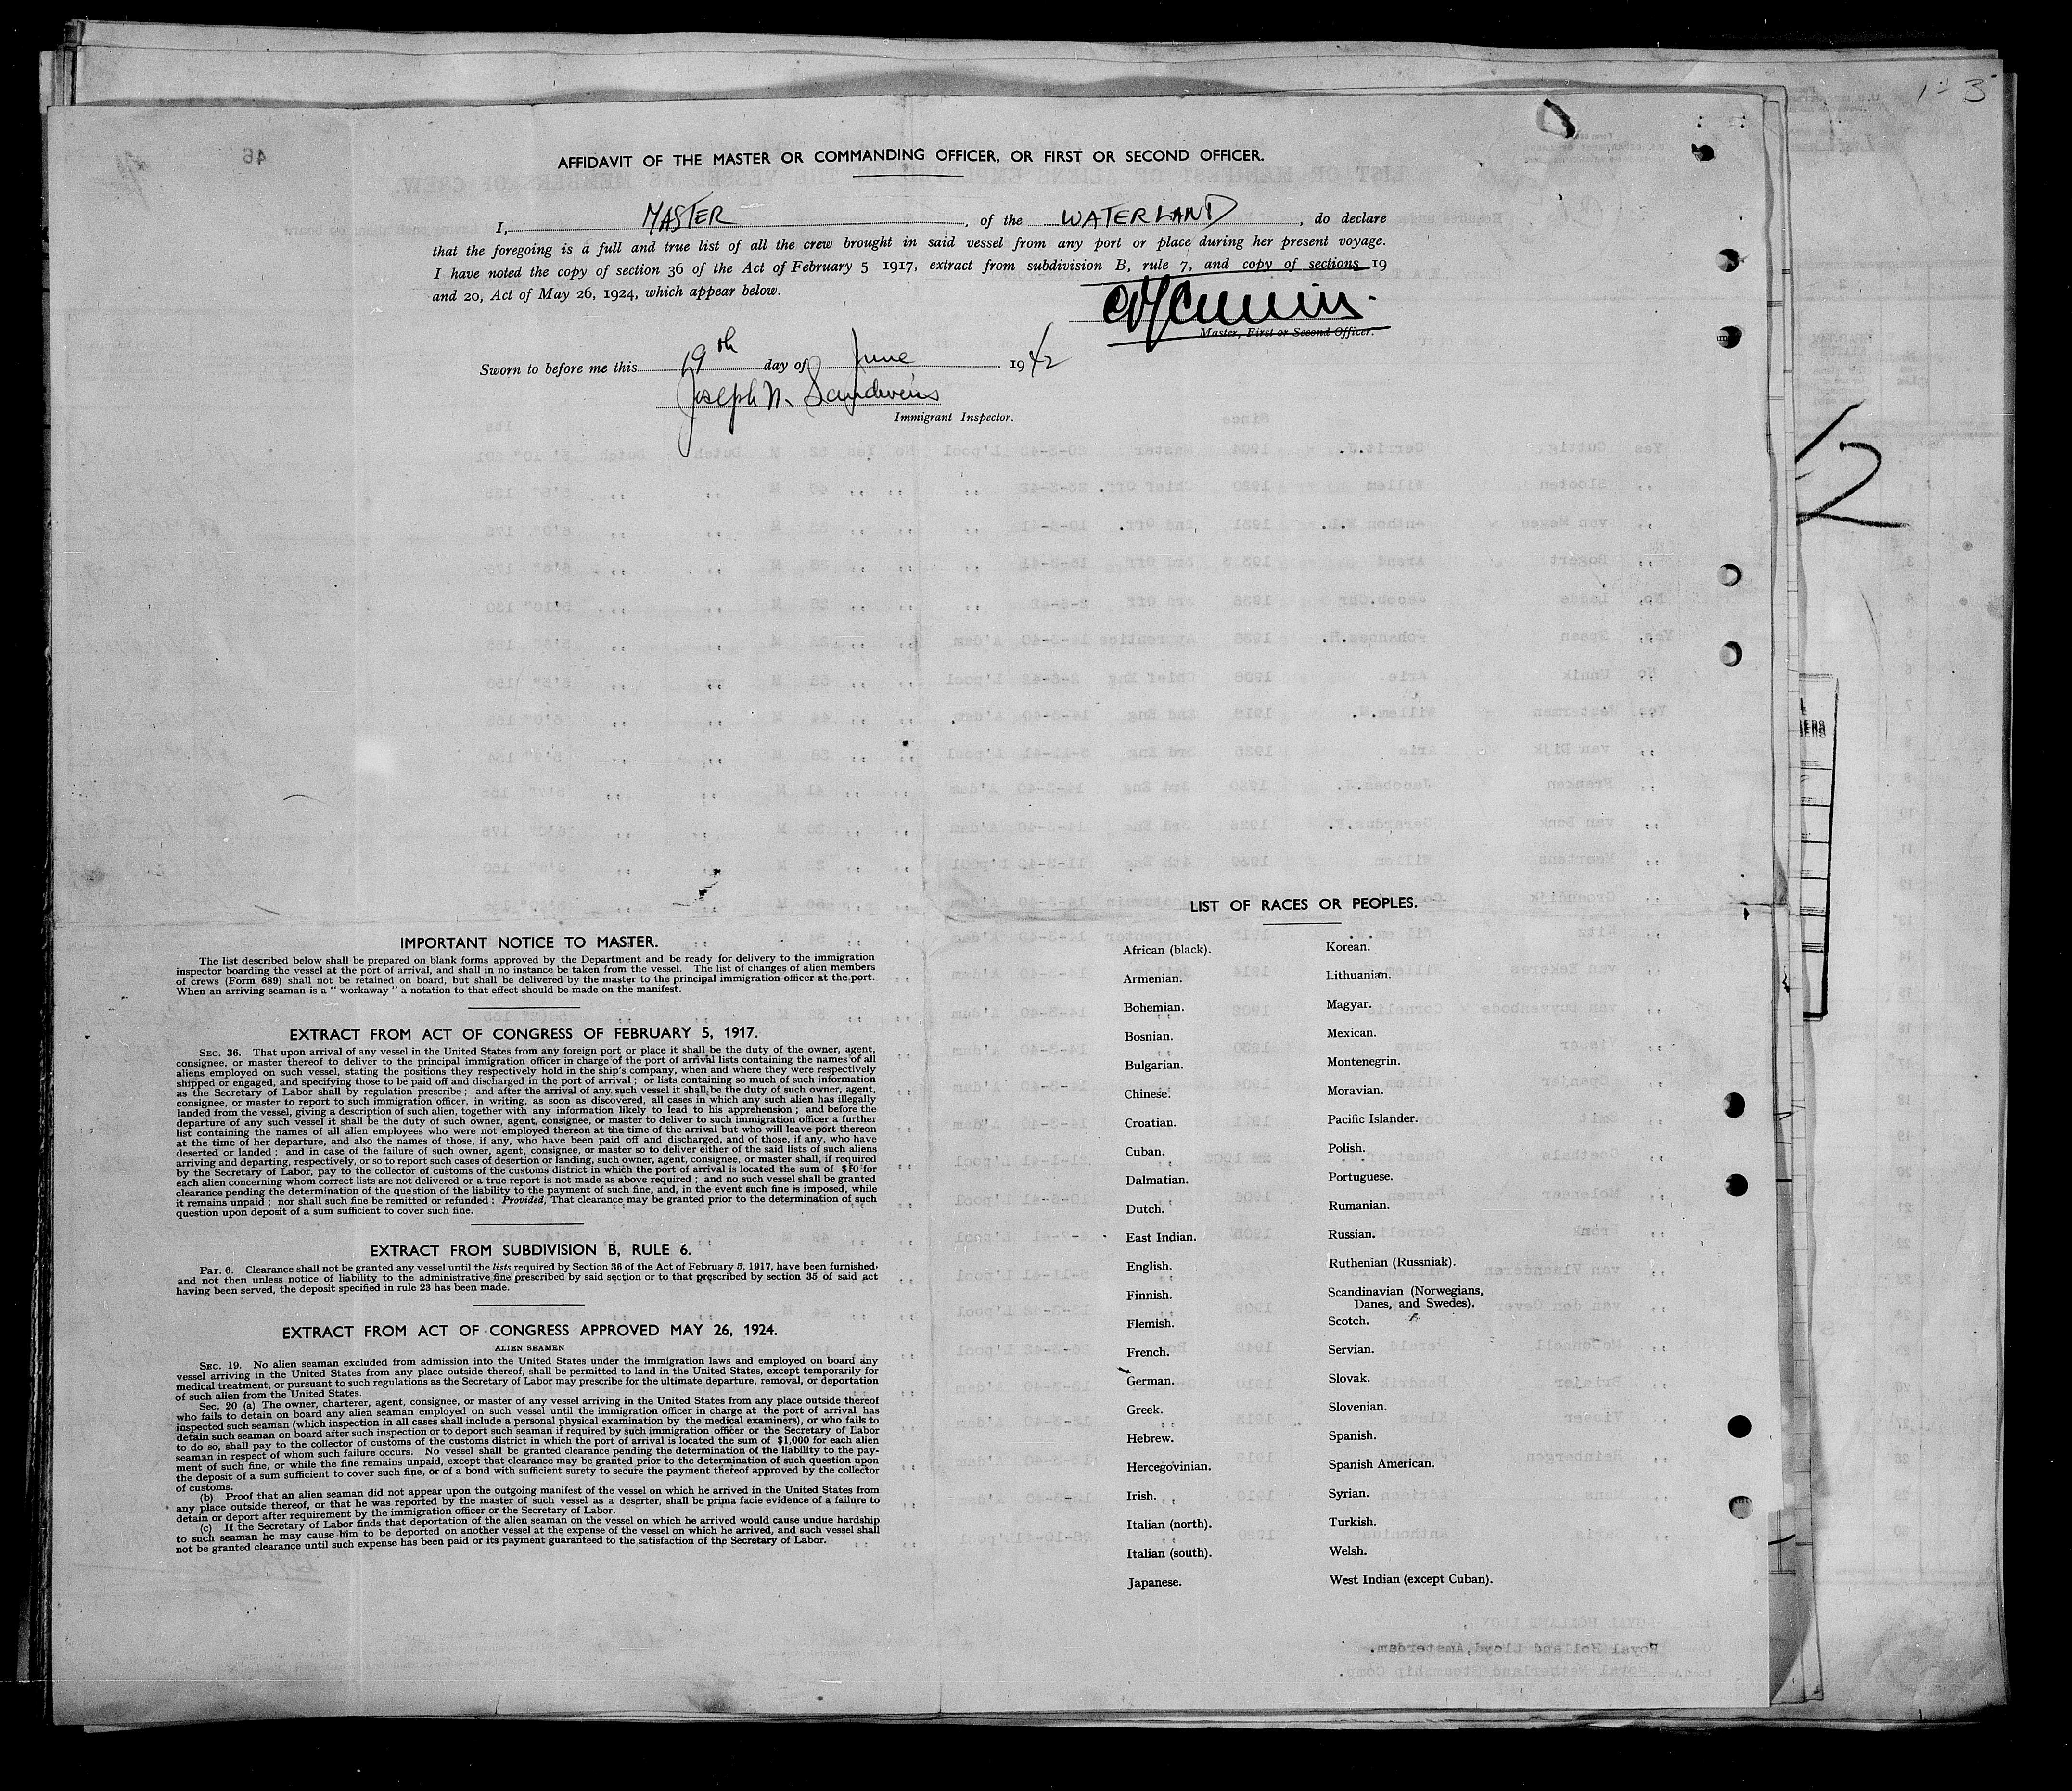 AFFIDAVIT OF THE MASTER OR COMMANDING OFFICER, OR FIRST OR SECOND OFFICER.
I, MASTER, of the WATERLAND, do declare
that the foregoing is a full and true list of all the crew brought in said vessel from any port or place during her present voyage.
I have noted the copy of section 36 of the Act of February 5 1917, extract from subdivision B, rule 7, and copy of sections 19
and 20, Act of May 26, 1924, which appear below.
Master, First or Second Officer.
Sworn to before me this 19th day of June 1942
Joseph N.
Immigrant Inspector.
12
IMPORTANT NOTICE TO MASTER.
The list described below shall be prepared on blank forms approved by the Department and be ready for delivery to the immigration
inspector boarding the vessel at the port of arrival, and shall in no instance be taken from the vessel. The list of changes of alien members
of crews (Form 689) shall not be retained on board, but shall be delivered by the master to the principal immigration officer at the port.
When an arriving seaman is a " workaway " a notation to that effect should be made on the manifest.
EXTRACT FROM ACT OF CONGRESS OF FEBRUARY 5, 1917.
SEC. 36. That upon arrival of any vessel in the United States from any foreign port or place it shall be the duty of the owner, agent,
consignee, or master thereof to deliver to the principal immigration officer in charge of the port of arrival lists containing the names of all
aliens employed on such vessel, stating the positions they respectively hold in the ship's company, when and where they were respectively
shipped or engaged, and specifying those to be paid off and discharged in the port of arrival ; or lists containing so much of such information
as the Secretary of Labor shall by regulation prescribe ; and after the arrival of any such vessel it shall be the duty of such owner, agent,
consignee, or master to report to such immigration officer, in writing, as soon as discovered, all cases in which any such alien has illegally
landed from the vessel, giving a description of such alien, together with any information likely to lead to his apprehension ; and before the
departure of any such vessel it shall be the duty of such owner, agent, consignee, or master to deliver to such immigration officer a further
list containing the names of all alien employees who were not employed thereon at the time of the arrival but who will leave port thereon
at the time of her departure, and also the names of those, if any, who have been paid off and discharged, and of those, if any, who have
deserted or landed ; and in case of the failure of such owner, agent, consignee, or master so to deliver either of the said lists of such aliens
arriving and departing, respectively, or so to report such cases of desertion or landing, such owner, agent, consignee, or master shall, if required
by the Secretary of Labor, pay to the collector of customs of the customs district in which the port of arrival is located the sum of $10 for
each alien concerning whom correct lists are not delivered or a true report is not made as above required ; and no such vessel shall be granted
clearance pending the determination of the question of the liability to the payment of such fine, and, in the event such fine is imposed, while
it remains unpaid ; nor shall such fine be remitted or refunded : Provided, That clearance may be granted prior to the determination of such
question upon deposit of a sum sufficient to cover such fine.
EXTRACT FROM SUBDIVISION B, RULE 6.
PAR. 6. Clearance shall not be granted any vessel until the lists required by Section 36 of the Act of February 5, 1917, have been furnished,
and not then unless notice of liability to the administrative fine prescribed by said section or to that prescribed by section 35 of said act
having been served, the deposit specified in rule 23 has been made.
EXTRACT FROM ACT OF CONGRESS APPROVED MAY 26, 1924.
ALIEN SEAMEN
SEC. 19. No alien seaman excluded from admission into the United States under the immigration laws and employed on board any
vessel arriving in the United States from any place outside thereof, shall be permitted to land in the United States, except temporarily for
medical treatment, or pursuant to such regulations as the Secretary of Labor may prescribe for the ultimate departure, removal, or deportation
of such alien from the United States.
Sec. 20 (a) The owner, charterer, agent, consignee, or master of any vessel arriving in the United States from any place outside thereof
who fails to detain on board any alien seaman employed on such vessel until the immigration officer in charge at the port of arrival has
inspected such seaman (which inspection in all cases shall include a personal physical examination by the medical examiners), or who fails to
detain such seaman on board after such inspection or to deport such seaman if required by such immigration officer or the Secretary of Labor
to do so, shall pay to the collector of customs of the customs district in which the port of arrival is located the sum of $1,000 for each alien
seaman in respect of whom such failure occurs. No vessel shall be granted clearance pending the determination of the liability to the pay-
ment of such fine, or while the fine remains unpaid, except that clearance may be granted prior to the determination of such question upon
the deposit of a sum sufficient to cover such fine, or of a bond with sufficient surety to secure the payment thereof approved by the collector
of customs.
(b) Proof that an alien seaman did not appear upon the outgoing manifest of the vessel on which he arrived in the United States from
any place outside thereof, or that he was reported by the master of such vessel as a deserter, shall be prima facie evidence of a failure to
detain or deport after requirement by the immigration officer or the Secretary of Labor.
(c) If the Secretary of Labor finds that deportation of the alien seaman on the vessel on which he arrived would cause undue hardship
to such seaman he may cause him to be deported on another vessel at the expense of the vessel on which he arrived, and such vessel shall
not be granted clearance until such expense has been paid or its payment guaranteed to the satisfaction of the Secretary of Labor.
LIST OF RACES OR PEOPLES.
African (black).
Armenian.
Bohemian.
Bosnian.
Bulgarian.
Chinese.
Croatian.
Cuban.
Dalmatian.
Dutch.
East Indian.
English.
Finnish.
Flemish.
French.
German.
Greek.
Hebrew.
Hercegovinian.
Irish.
Italian (north).
Italian (south).
Japanese.
Korean.
Lithuanian.
Magyar.
Mexican.
Montenegrin.
Moravian.
Pacific Islander.
Polish.
Portuguese.
Rumanian.
Russian.
Ruthenian (Russniak).
Scandinavian (Norwegians,
Danes, and Swedes).
Scotch.
Servian.
Slovak.
Slovenian.
Spanish.
Spanish American.
Syrian.
Turkish.
Welsh.
West Indian (except Cuban).